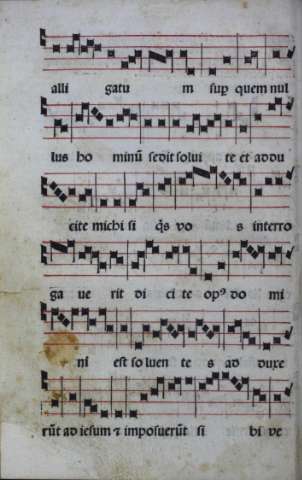 alli gatu m sup̱ quem nul
lus ho minū sedit solui te et addu
cite michi si q̄s vo s interro
ga ue rit di ci te opꝰ do mi
ni est so luen te s ad duxe
rūt ad iesum ⁊ imposuerūt si bi ve